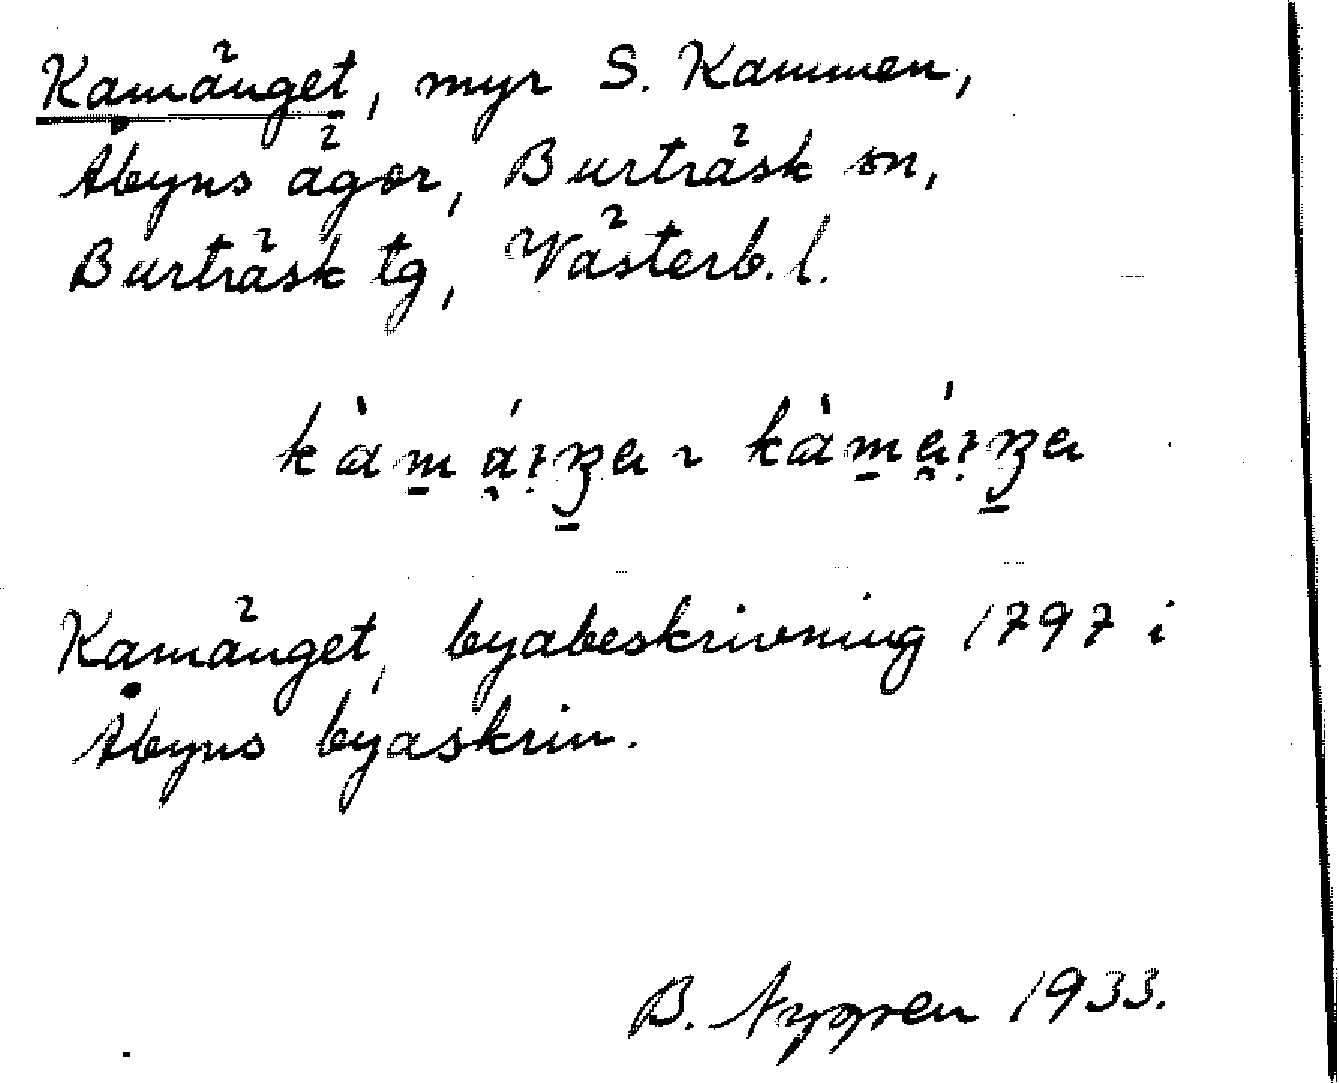 Kamänget, myr S. Kammen,
Åbyns ägor, Burträsk sn,
Burträsk tg, Västerb. l.
Kamänget, byabeskrivning 1797 i
Åbyns byaskrin.
B. Nygren 1933.